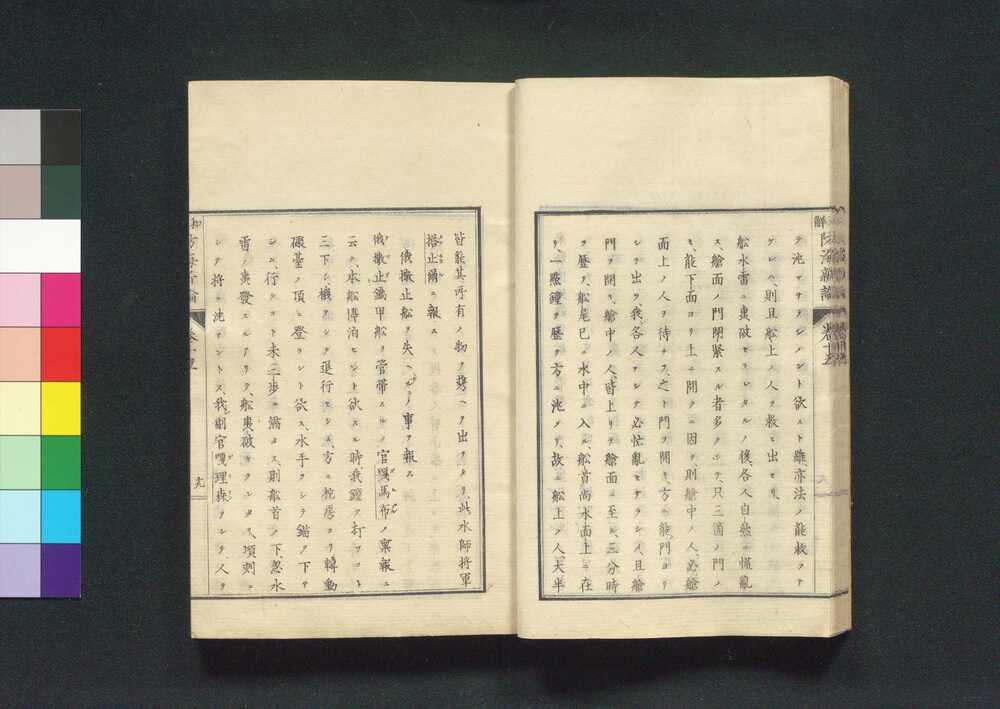 テ沈マサラシメント欲スト雖、亦法ノ能救フナ
グレハ、則且船上ノ人ヲ救ヒ出セリ、
船水雷ニ轟破セラレタルノ後、各人自然ニ慌亂
ス、艙面ノ門閉緊スル者多クシテ、只三箇ノ門ノ
ミ、能下面ヨリ上ニ開ク、因テ則艙中ノ人、必艙
面上ノ人ヲ待チ、之ト門ヲ開キ、方ニ能門ヨリ
シテ出ツ、我各人ヲシテ必忙亂セサラシメ、且艙
門ヲ開キ、艙中ノ人、皆上リテ艙面ニ至ル、三分時
ヲ歴テ、船尾已ニ水中ニ入ル、船首尚水面上ニ在
リ、一點鐘ヲ歴テ方ニ沈メリ、故ニ船上ノ人大半
皆能其所有ノ物ヲ携ヘテ出タリ、此水師將軍
搭止爾ニ報ス
俄撤止船ヲ失ヘルノ事ヲ報ス
俄撤止鐵甲船ヲ管帶スルノ官嘎馬布ノ稟報ニ
云フ、本船停泊セント欲スル時、我鐘ヲ打ツコト
三下シ、機ヲシテ退行セシメ、方ニ柁房ヨリ轉動
礮臺ノ頂ニ登ラント欲ス、水手ヲシテ錨ヲ下サ
シメ、行クコト未三歩ニ滿タス、則船首ノ下、忽水
雷ノ轟發スルアリテ、船轟破セラレタリ、頃刻ニ
シテ將ニ沈マントス、我副官嘎理森ヲシテ、人ヲ
十九